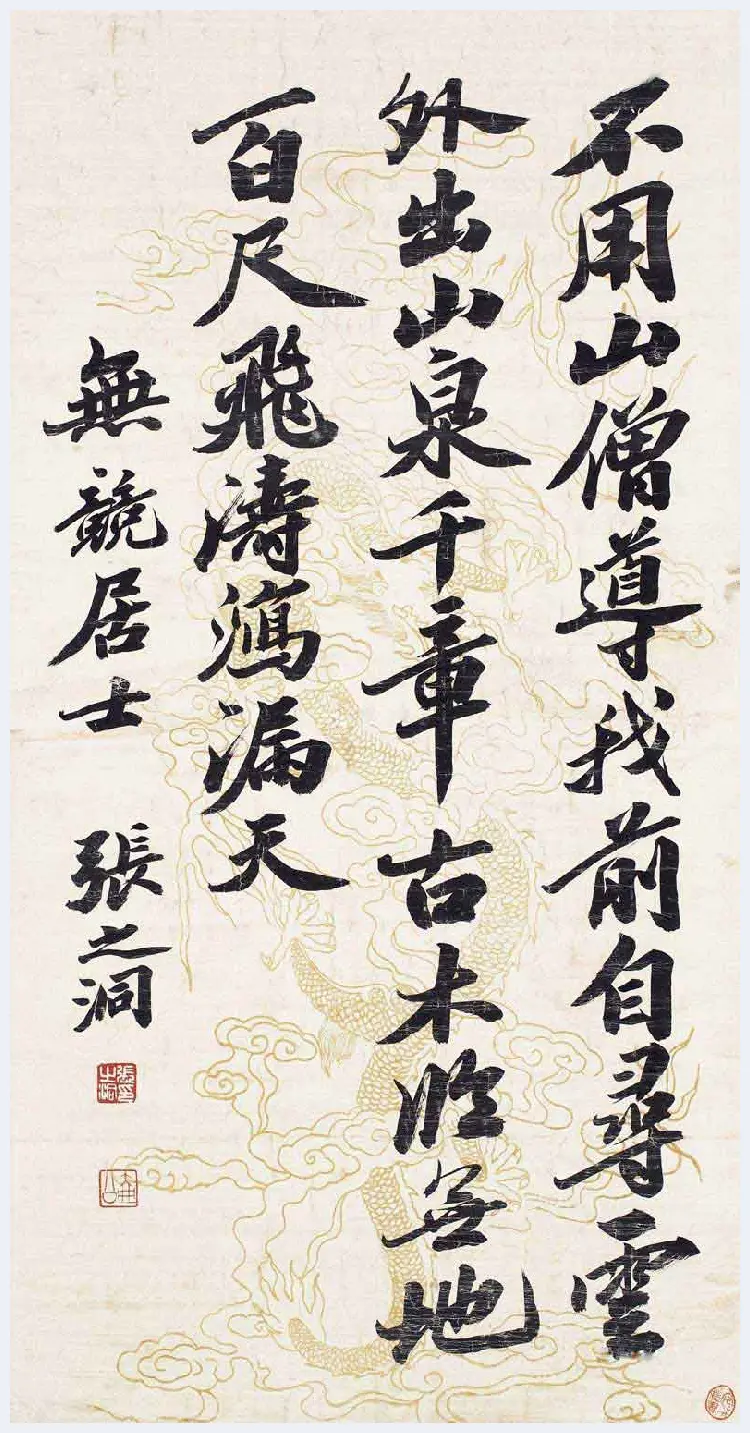 不用山僧導我前自尋雲
外出山泉千章古木臨無地
百尺飛濤瀉漏天
無競居士 張之洞
張印之洞